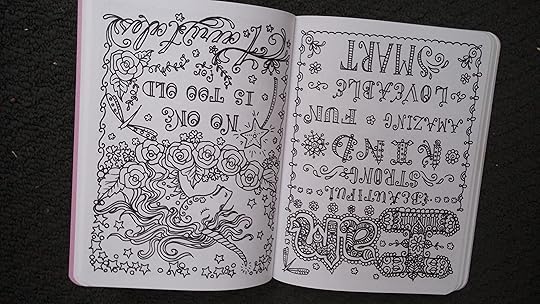 I am
BEAUTIFUL
STRONG
KIND
AMAZING FUN
LOVEABLE
SMART
NO ONE
IS TOO OLD
for
Fairytales